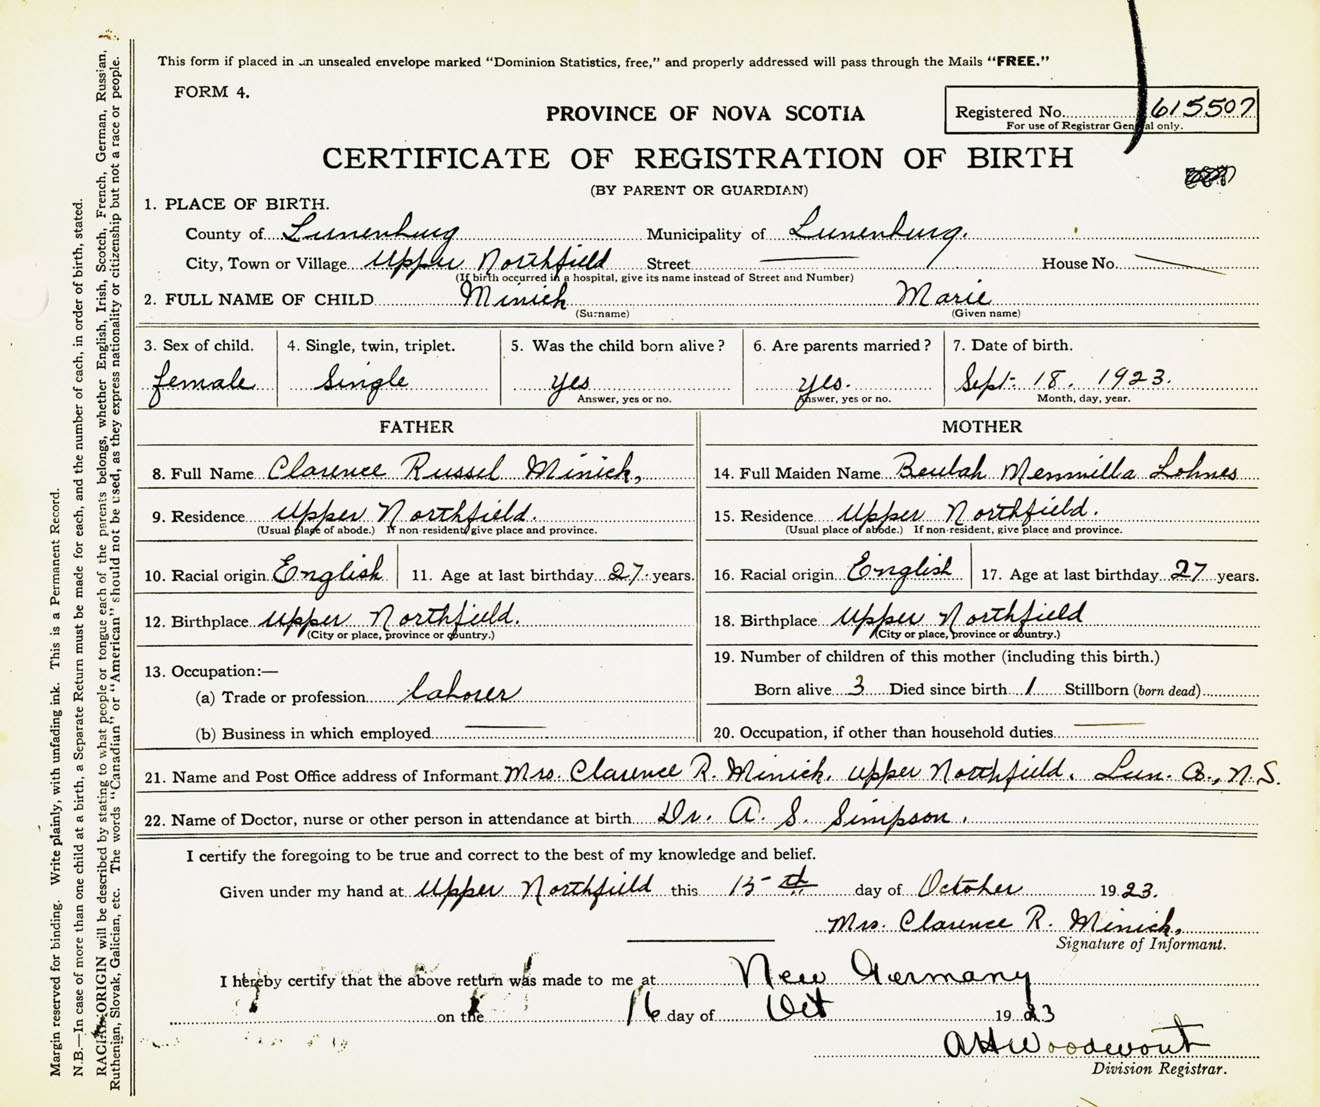 This form if placed in an unsealed envelope marked "Dominion Statistics, free," and properly addressed will pass through the Mails "FREE."
FORM 4.
PROVINCE OF NOVA SCOTIA
Registered No. 615507
For use of Registrar General only.
CERTIFICATE OF REGISTRATION OF BIRTH
(BY PARENT OR GUARDIAN)
1. PLACE OF BIRTH.
County of Lunenburg Municipality of Lunenburg.
City, Town or Village Upper Northfield Street — House No. —
(If birth occurred in a hospital, give its name instead of Street and Number)
2. FULL NAME OF CHILD Minich Marie
(Surname) (Given name)
3. Sex of child. 4. Single, twin, triplet. 5. Was the child born alive? 6. Are parents married? 7. Date of birth.
female Single yes yes. Sept. 18. 1923.
Answer, yes or no. Answer, yes or no. Month, day, year.
FATHER MOTHER
8. Full Name Clarence Russel Minich, 14. Full Maiden Name Beulah Memmilla Lohnes
9. Residence Upper Northfield. 15. Residence Upper Northfield.
(Usual place of abode.) If non-resident, give place and province. (Usual place of abode.) If non-resident, give place and province.
10. Racial origin English 11. Age at last birthday 27 years. 16. Racial origin English 17. Age at last birthday 27 years.
12. Birthplace Upper Northfield. 18. Birthplace Upper Northfield
(City or place, province or country.) (City or place, province or country.)
19. Number of children of this mother (including this birth.)
13. Occupation:—
(a) Trade or profession laborer Born alive 3 Died since birth 1 Stillborn (born dead)
(b) Business in which employed — 20. Occupation, if other than household duties —
21. Name and Post Office address of Informant Mrs. Clarence R. Minich. Upper Northfield. Lun. Co., N.S.
22. Name of Doctor, nurse or other person in attendance at birth Dr. A. S. Simpson.
I certify the foregoing to be true and correct to the best of my knowledge and belief.
Given under my hand at Upper Northfield this 15th day of October 1923.
Mrs. Clarence R. Minich.
Signature of Informant.
I hereby certify that the above return was made to me at New Germany
on the 16 day of Oct 1923
Division Registrar.
Margin reserved for binding. Write plainly, with unfading ink. This is a Permanent Record.
N.B.—In case of more than one child at a birth, a Separate Return must be made for each, and the number of each, in order of birth, stated.
RACIAL ORIGIN will be described by stating to what people or tongue each of the parents belongs, whether English, Irish, Scotch, French, German, Russian,
Ruthenian, Slovak, Galician, etc. The words "Canadian" or "American" should not be used, as they express nationality or citizenship but not a race or people.